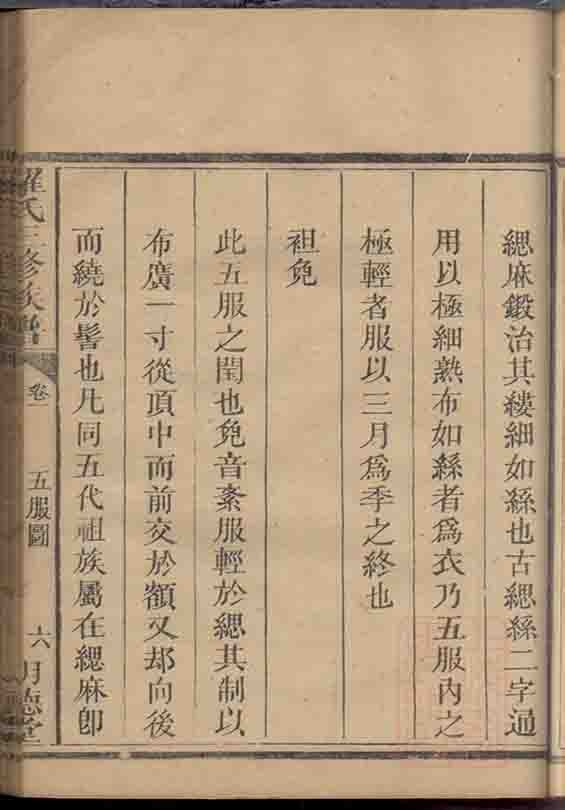 緦麻鍛治其縷細如絲也古緦絲二字通
用以極細熟布如絲者爲衣乃五服內之
極輕者服以三月爲季之終也
袒免
此五服之閏也免音紊服輕於緦其制以
布廣一寸從頂中而前交於額又却向後
而繞於髻也凡同五代祖族屬在緦麻卽
羅氏三修族譜
卷一
五服圖
六
明德堂